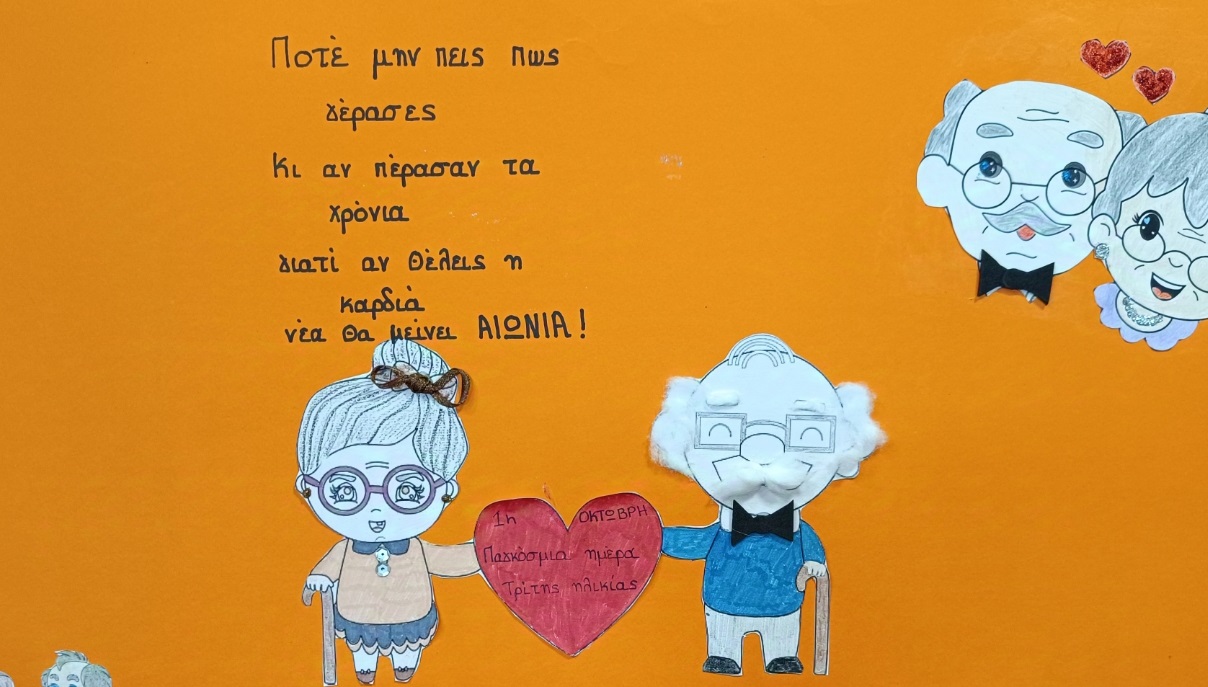 Ποτέ μην πεις πως
γέρασες
Κι αν πέρασαν τα
χρόνια
γιατί αν θέλεις η
καρδιά
νέα θα μείνει ΑΙΩΝΙΑ!
1η ΟΚΤΩΒΡΗ
Παγκόσμια ημέρα
Τρίτης ηλικίας